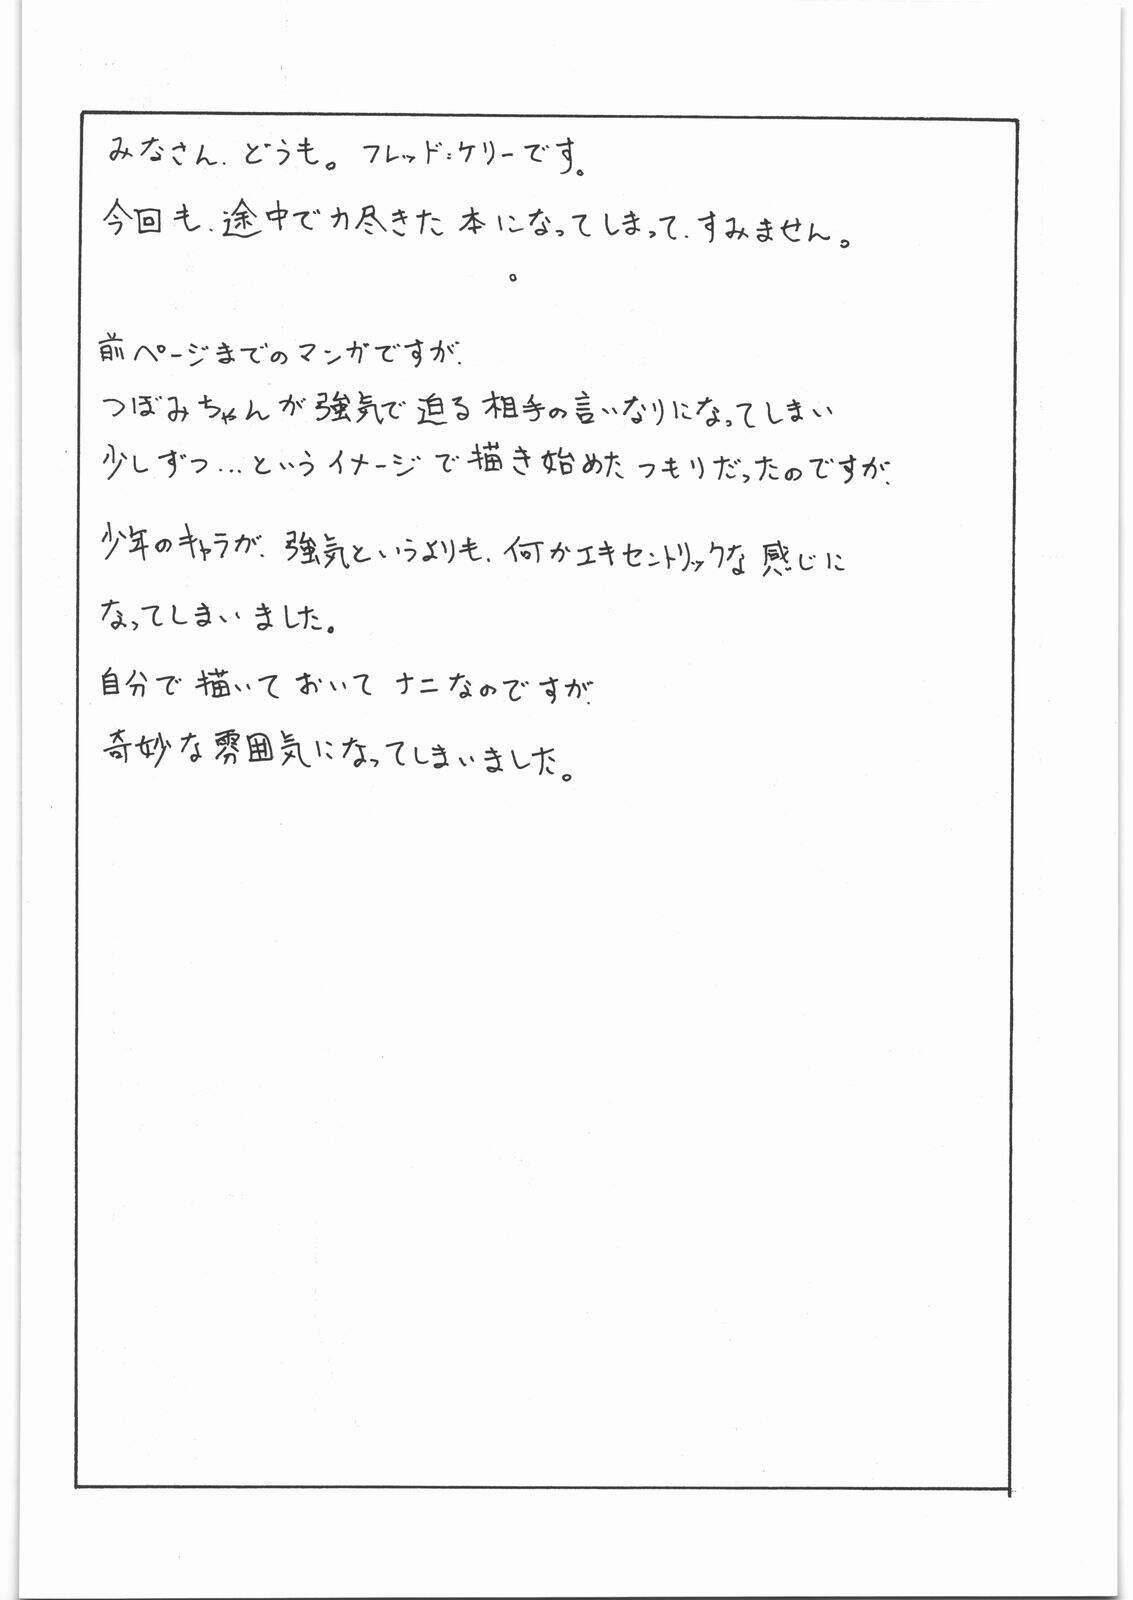 みなさん、どうも。フレッド=ケリーです。
今回も、途中で力尽きた本になってしまって、すみません。
。
前ページまでのマンガですが、
つぼみちゃんが強気で迫る相手の言いなりになってしまい
少しずつ...というイメージで描き始めたつもりだったのですが、
少年のキャラが、強気というよりも、何かエキセントリックな感じに
なってしまいました。
自分で描いておいてナニなのですが、
奇妙な雰囲気になってしまいました。